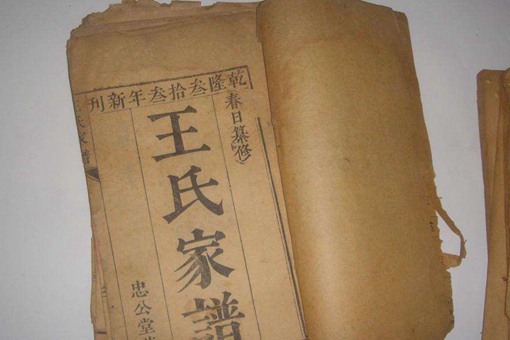 乾隆叁拾叁年新刊
春日纂修
王氏家譜
忠公堂